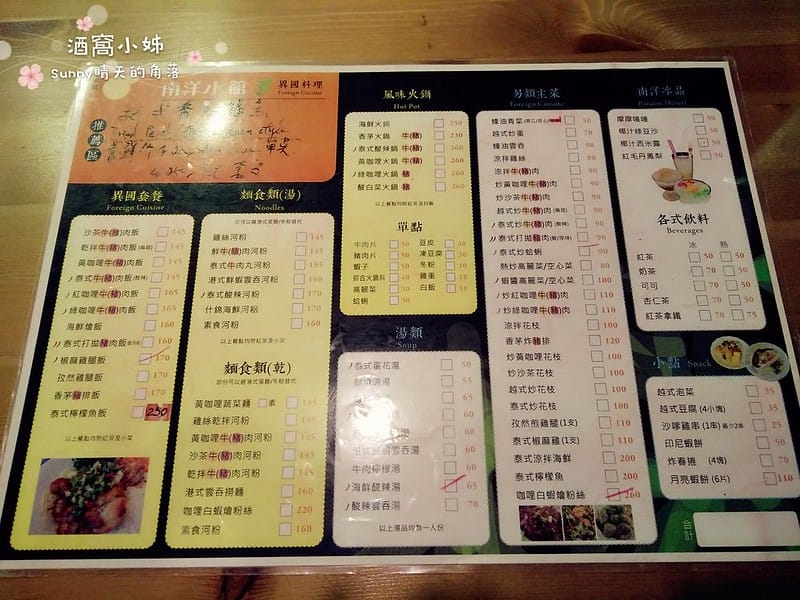 酒窩小姊
Sunny晴天的角落
南洋小館
異國料理
Foreign Cuisine
推薦區
異國套餐
Foreign Cuisine
沙茶牛(豬)肉飯 145
乾拌牛(豬)肉飯 145
黃咖哩牛(豬)肉飯 145
/泰式牛(豬)肉飯(酸辣) 165
/紅咖哩牛(豬)肉飯 165
/綠咖哩牛(豬)肉飯 165
海鮮燴飯 160
//泰式打拋豬肉飯 160
/椒麻雞腿飯 170
孜然雞腿飯 170
香茅豬排飯 170
泰式檸檬魚飯 250
以上餐點均附紅茶及小菜
麵食類(湯)
Noodles
也可以選港式蛋麵/冬粉替代
雞絲河粉 145
鮮牛(豬)肉河粉 145
泰式牛肉丸河粉 155
港式鮮蝦雲吞河粉 160
/泰式酸辣河粉 170
什錦海鮮河粉 170
素食河粉 160
以上餐點均附紅茶及小菜
麵食類(乾)
部份可以選港式蛋麵/冬粉替代
黃咖哩蔬菜麵 素 145
雞絲乾拌河粉 145
黃咖哩牛(豬)肉河粉 145
沙茶牛(豬)肉河粉 145
乾拌牛(豬)肉河粉 145
港式雲吞撈麵 160
咖哩白蝦燴粉絲 220
素食河粉 160
風味火鍋
Hot Pot
海鮮火鍋 250
香茅火鍋 牛(豬) 230
/泰式酸辣鍋 牛(豬) 260
黃咖哩火鍋 牛(豬) 260
/綠咖哩鍋 豬 260
酸白菜火鍋 豬 260
以上餐點均附紅茶及白飯
單點
牛肉片 50
豬肉片 50
蝦子 50
綜合火鍋料 40
高麗菜 30
蛤蜊 30
豆皮 50
凍豆腐 30
冬粉 20
雞蛋 10
白飯 10
湯類
Soup
/泰式蛋花湯 50
55
65
60
60
牛肉檸檬湯 60
/海鮮酸辣湯 65
/酸辣雲吞湯 70
以上湯品均為一人份
另類主菜
Foreign Cuisine
蠔油青菜 50
越式炒蛋 70
蠔油雲吞 90
涼拌雞絲 80
涼拌牛(豬)肉 80
炒黃咖哩牛(豬)肉 90
炒沙茶牛(豬)肉 90
越式炒牛(豬)肉 90
//泰式打拋豬肉 90
/泰式炒蛤蜊 90
熱炒高麗菜/空心菜 80
蝦醬高麗菜/空心菜 80
/炒紅咖哩牛(豬)肉 110
/炒綠咖哩牛(豬)肉 110
涼拌花枝 100
香茅炸豬排 120
炒黃咖哩花枝 100
炒沙茶花枝 100
越式炒花枝 100
泰式炒花枝 100
孜然煎雞腿(1支) 110
泰式椒麻雞(1支) 110
泰式涼拌海鮮 200
泰式檸檬魚 200
咖哩白蝦燴粉絲 260
南洋冰品
摩摩喳喳 50
椰汁綠豆沙 50
椰汁西米露 50
紅毛丹鳳梨 50
各式飲料
Beverages
冰 熱
紅茶 50 50
奶茶 70 70
可可 50 50
杏仁茶 50 50
紅茶拿鐵 70 75
小點 Snack
越式泡菜 35
越式豆腐(4小塊) 35
沙嗲雞串(1串)最少2串 25
印尼蝦餅 50
炸春捲 (4塊) 70
月亮蝦餅(6片) 110
合計